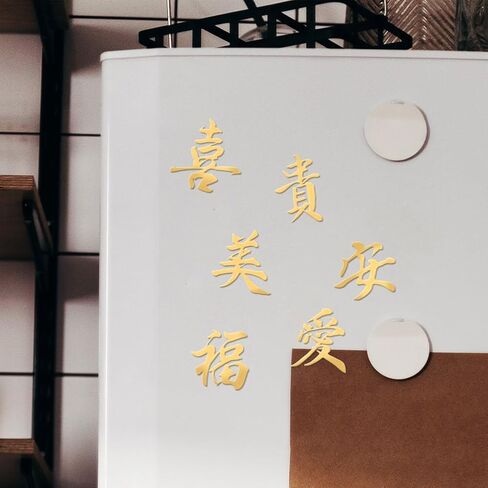 喜
貴
美
安
福
愛